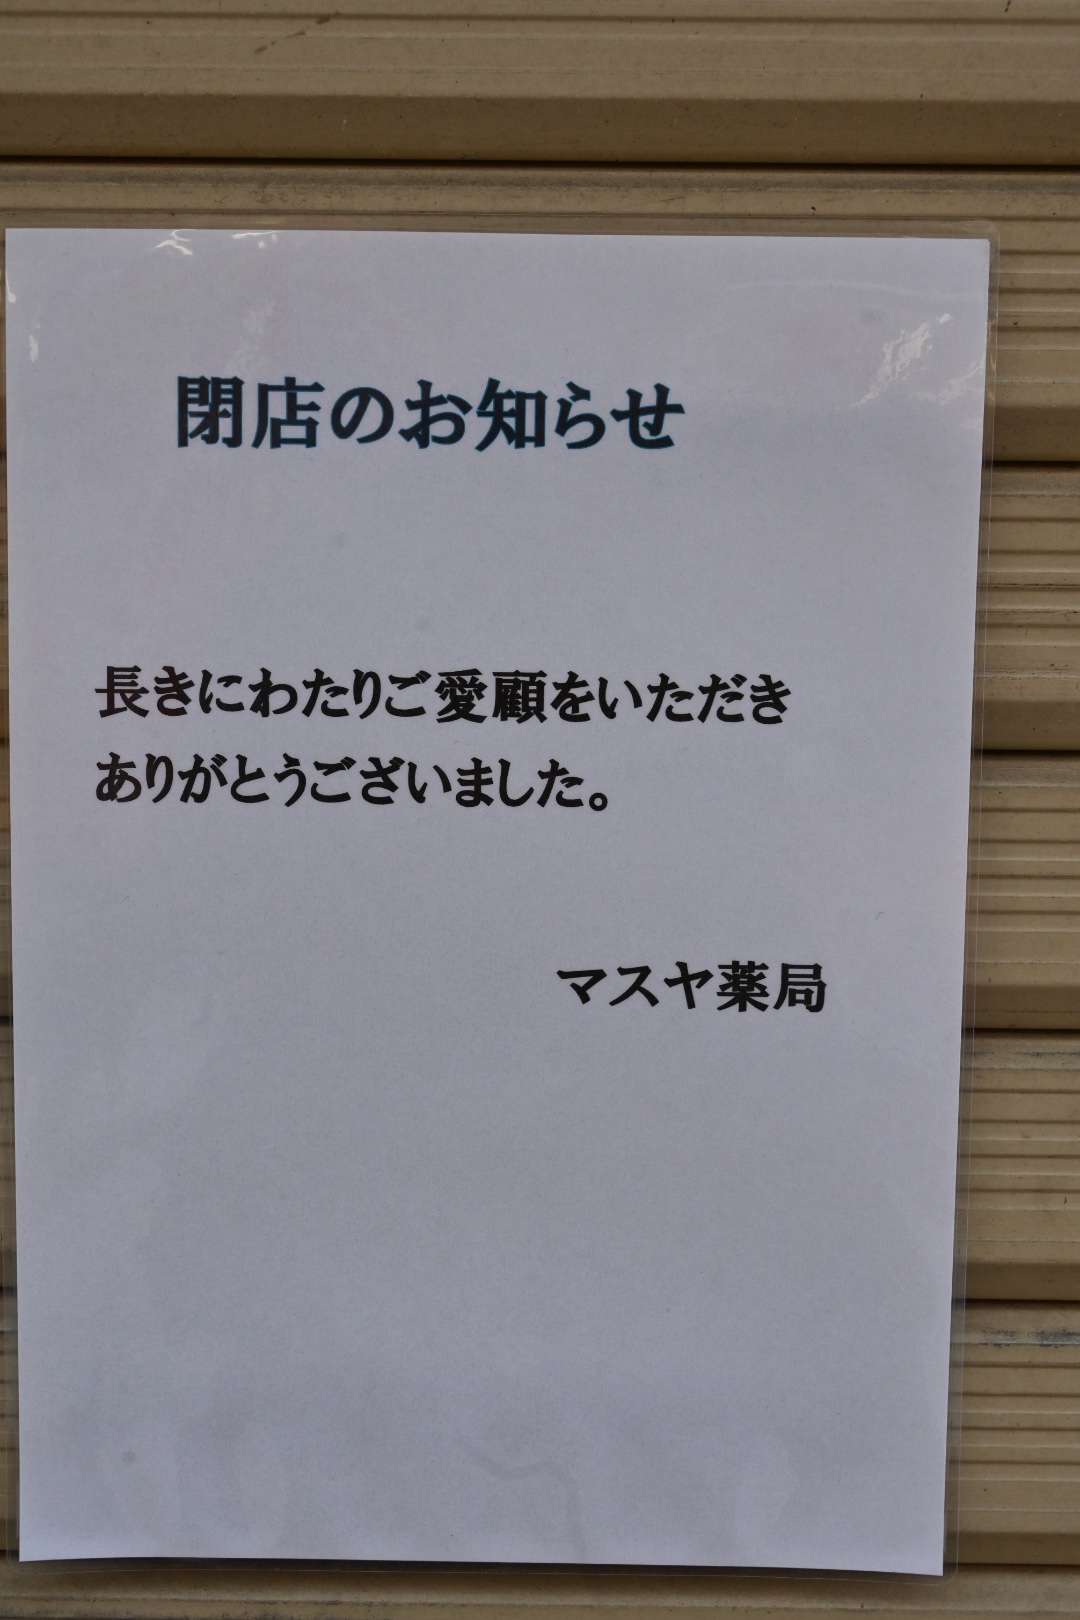 閉店のお知らせ
長きにわたりご愛顧をいただき
ありがとうございました。
マスヤ薬局